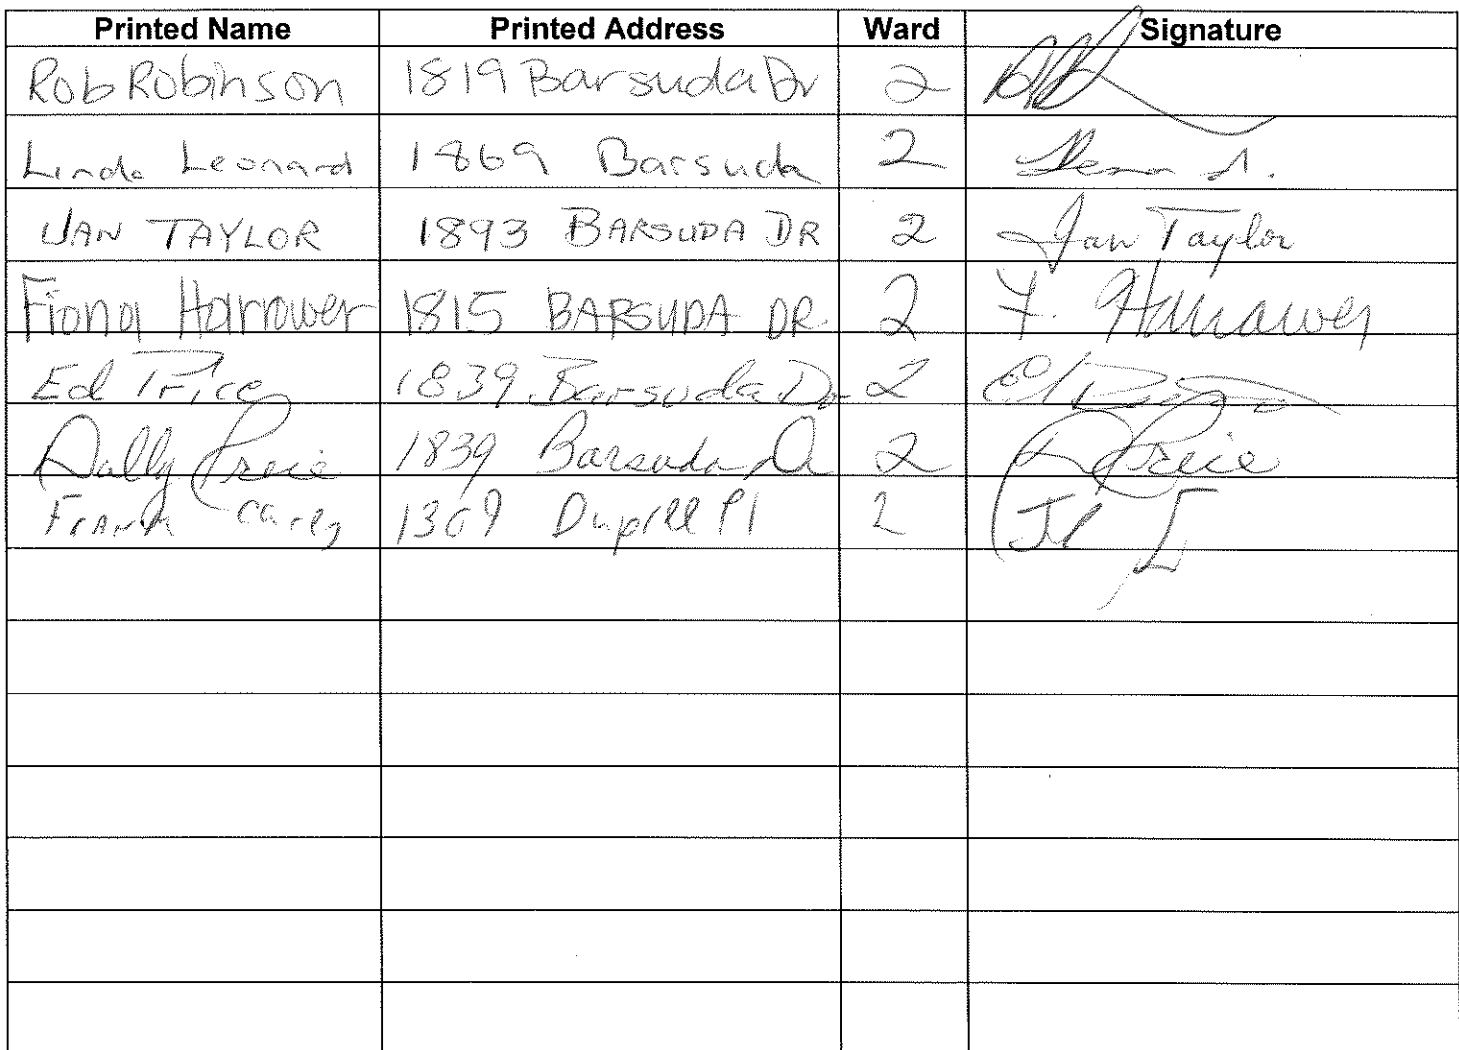 Printed Name Printed Address Ward Signature
Rob Robinson 1819 Barsuda Dr 2
Linda Leonard 1869 Barsuda 2
JAN TAYLOR 1893 BARSUDA DR 2 Jan Taylor
Fiona Harrower 1815 BARSUDA DR. 2 F. Harrower
Ed Price 1839 Barsuda Dr 2
Dally Preie 1839 Barsuda Dr 2 D Preie
Frank 1369 Pl 2